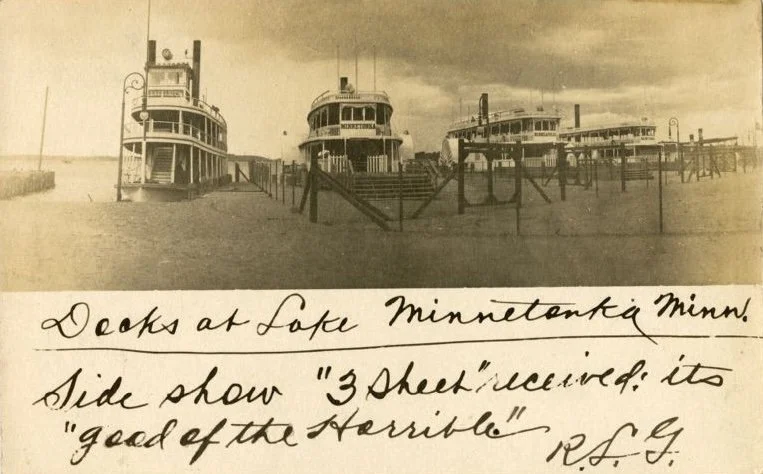 MINNETONKA
Docks at Lake Minnetonka Minn.
Side show "3 Sheet" received: its
"good of the Horrible"
R. L. G.